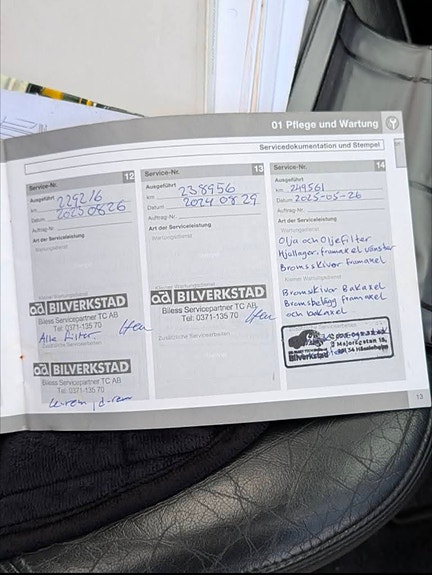 01 Pflege und Wartung
Servicedokumentation und Stempel
Service-Nr. 12
Ausgeführt
km 229216
Datum
Auftrag-Nr.
Art der Serviceleistung
Wartungsdienst
Kleiner Wartungsdienst
ad BILVERKSTAD
Biless Servicepartner TC AB
Tel: 0371-135 70
Alla filter
Zusätzliche Servicearbeiten
ad BILVERKSTAD
Biless Servicepartner TC AB
Tel: 0371-135 70
Service-Nr. 13
Ausgeführt
km 238956
Datum 2024 08 29
Auftrag-Nr.
Art der Serviceleistung
Wartungsdienst
Kleiner Wartungsdienst
ad BILVERKSTAD
Biless Servicepartner TC AB
Tel: 0371-135 70
Zusätzliche Servicearbeiten
Service-Nr. 14
Ausgeführt
km 249561
Datum 2025-05-26
Auftrag-Nr.
Art der Serviceleistung
Wartungsdienst
Olja och Oljefilter
Hjullager framaxel vänster
Bromsskivor framaxel
Kleiner Wartungsdienst
Bromskivor Bakaxel
Bromsbelägg framaxel
och bakaxel
Bilverkstad
13